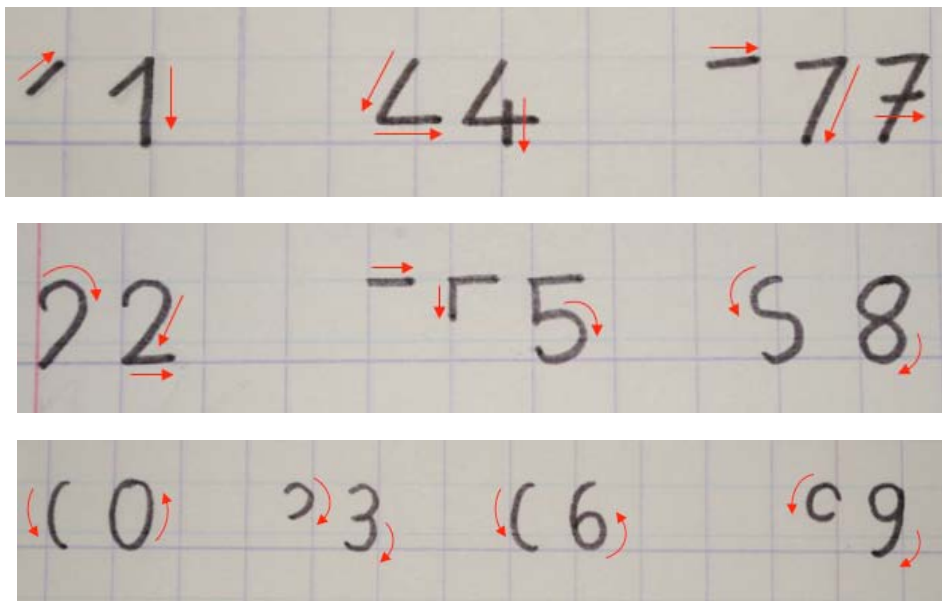 1 4 7
2 5 8
0 3 6 9